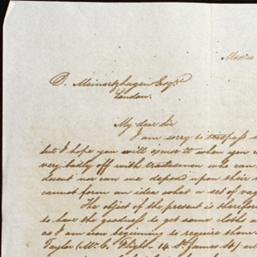 Mexico
D. Meinertzhagen Esqre
London.
My dear Sir
I am sorry to trespass
but I hope you will excuse it when you
very badly off with tradesmen who can
does nor can one depend upon their
cannot form an idea what a set of
The object of the present is therefore
to have the goodness to get some cloth
as I am now beginning to require them
Taylor (Mr. C. 14 St. James St)